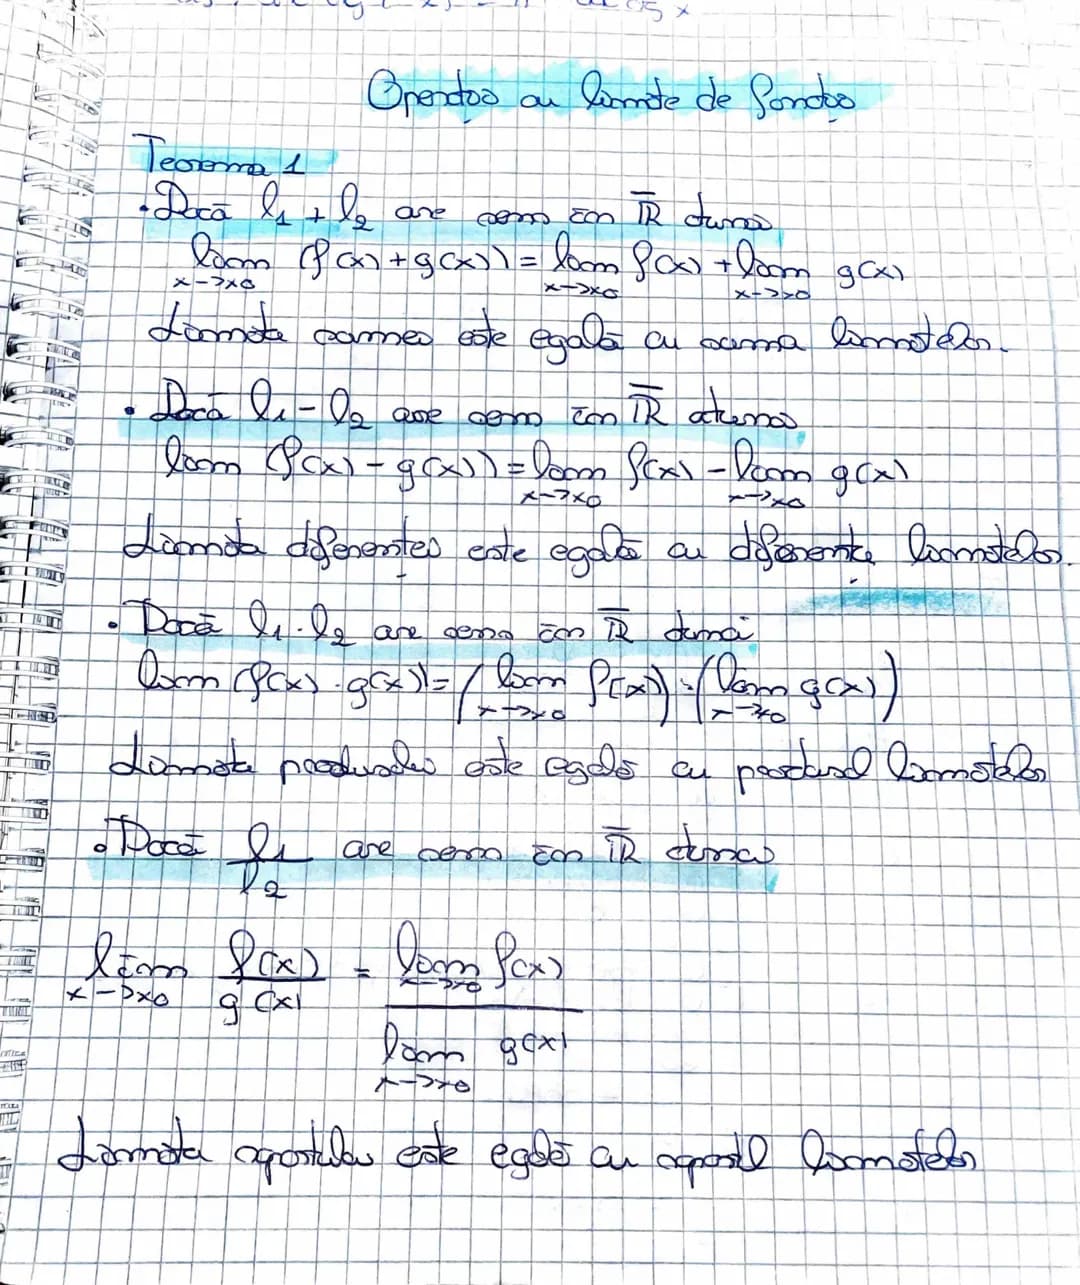 Operații cu limite de funcții
Teorema 1
• Dacă l₁ + l₂ are sens în R̅ atunci
lim (f(x)+g(x)) = lim f(x) + lim g(x)
x->x0 x->x0 x->x0
Limita sumei este egală cu suma limitelor.
• Dacă l₁ - l₂ are sens în R̅ atunci
lim (f(x) - g(x)) = lim f(x) - lim g(x)
x->x0 x->x0
Limita diferenței este egală cu diferența limitelor.
• Dacă l₁ · l₂ are sens în R̅ atunci
lim (f(x) · g(x)) = (lim f(x)) · (lim g(x))
x->x0 x->x0
Limita produsului este egală cu produsul limitelor
• Dacă l₁ are sens în R̅ atunci
l₂
lim f(x) = lim f(x)
x->x0 g(x) x->x0
lim g(x)
x->x0
Limita raportului este egală cu raportul limitelor